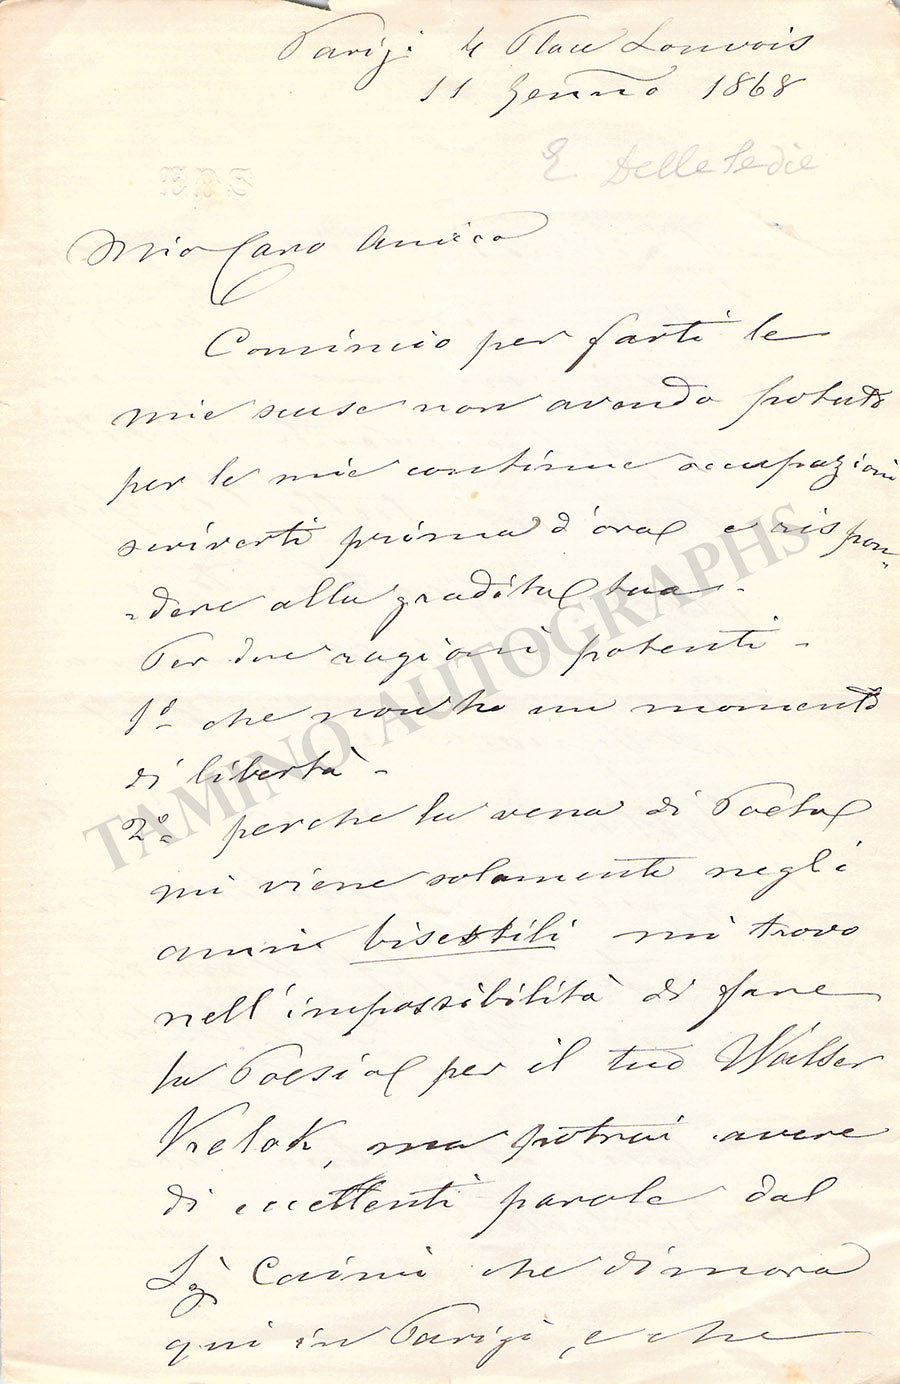 Parigi 4 Place Louvois
11 Genn̄o 1868
E. Delle Sedie
EDS
Mio Caro Amico
Comincio per farti le
mie scuse non avendo potuto
per le mie continue occupazioni
scriverti prima d'ora e rispon-
-dere alla gradita tua -
Per due ragioni potenti -
1º che non ho un momento
di libertà -
2º perche la vena di Poeta
mi viene solamente negli
anni bisestili mi trovo
nell'impossibilità di fare
la Poesia per il tuo Walser
Krelok, ma potrai avere
di eccellenti parole dal
Sig. Caimi che dimora
qui in Parigi, e che
TAMINO AUTOGRAPHS